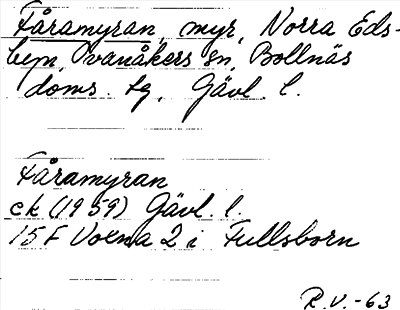 Fåramyran, myr, Norra Eds-
byn, Ovanåkers sn, Bollnäs
doms. tg, Gävl. l.
Fåramyran
ek (1959) Gävl. l.
15 F Voxna 2 i Fullsborn
R.V.-63